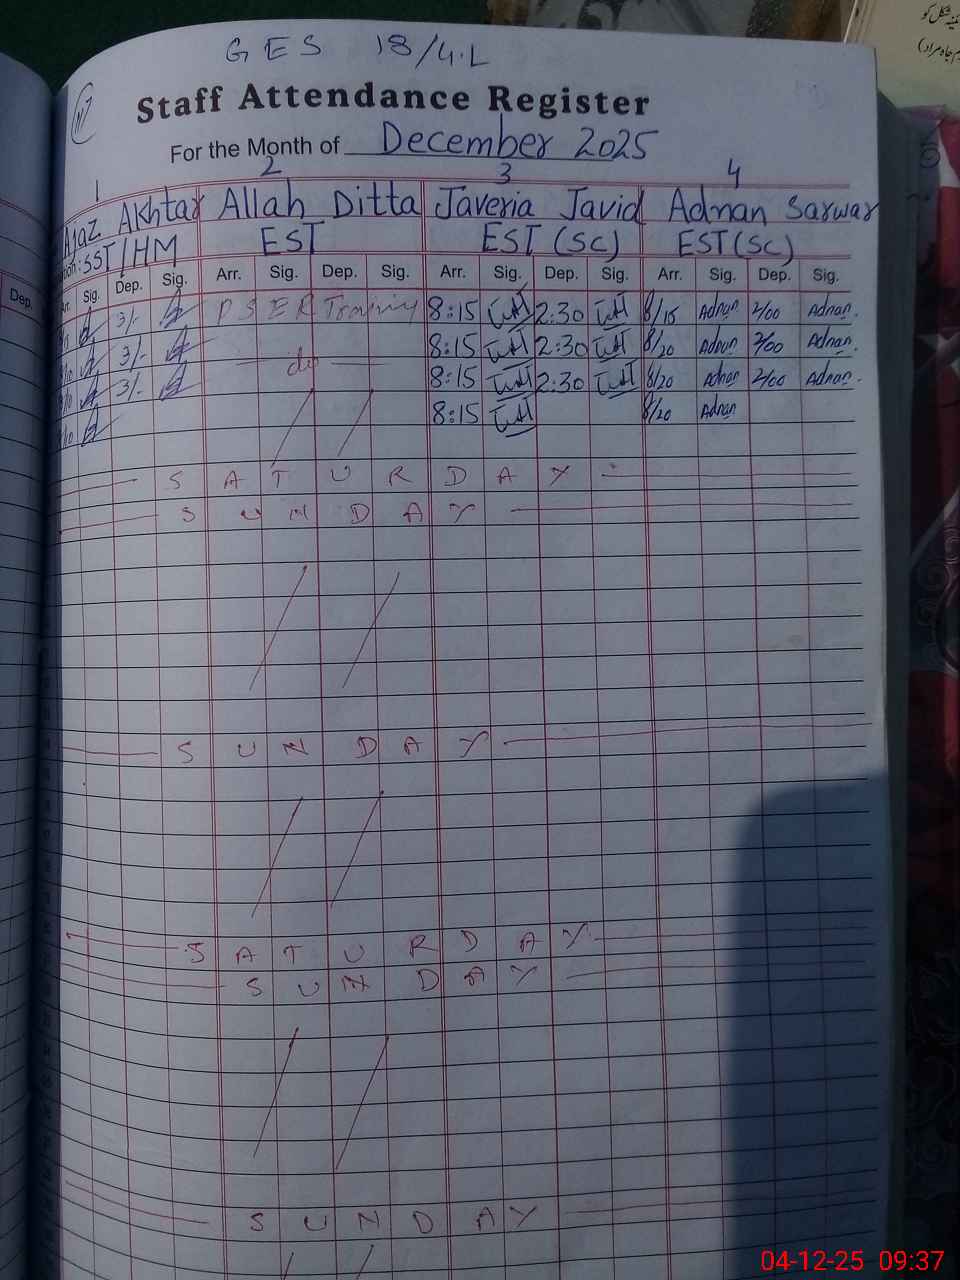 GES 18/4.L
Staff Attendance Register
For the Month of December 2025
1 2 3 4
Ajaz Akhtar Allah Ditta Javeria Javid Adnan Sarwar
SST/HM EST EST (SC) EST (SC)
Dep.
Arr. Sig. Dep. Sig. Arr. Sig. Dep. Sig. Arr. Sig. Dep. Sig. Arr. Sig. Dep. Sig.
3/- PSER Training 8:15 2:30 8/15 Adnan 2/00 Adnan.
3/- do 8:15 2:30 8/20 Adnan 2/00 Adnan.
3/- 8:15 2:30 8/20 Adnan 2/00 Adnan.
8:15 8/20 Adnan
SATURDAY
SUNDAY
SUNDAY
SATURDAY
SUNDAY
SUNDAY
04-12-25 09:37